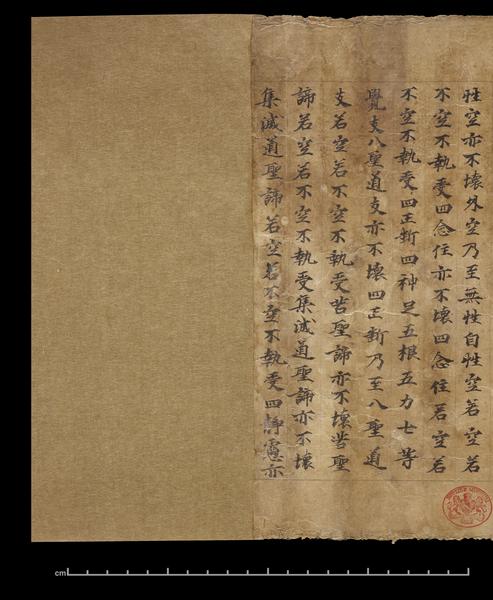 性空亦不壞外空乃至無性自性空若空若
不空不執受四念住亦不壞四念住若空若
不空不執受四正斷四神足五根五力七等
覺支八聖道支亦不壞四正斷乃至八聖道
支若空若不空不執受苦聖諦亦不壞苦聖
諦若空若不空不執受集滅道聖諦亦不壞
集滅道聖諦若空若不空不執受四靜慮亦
BRITISH MUSEUM
cm